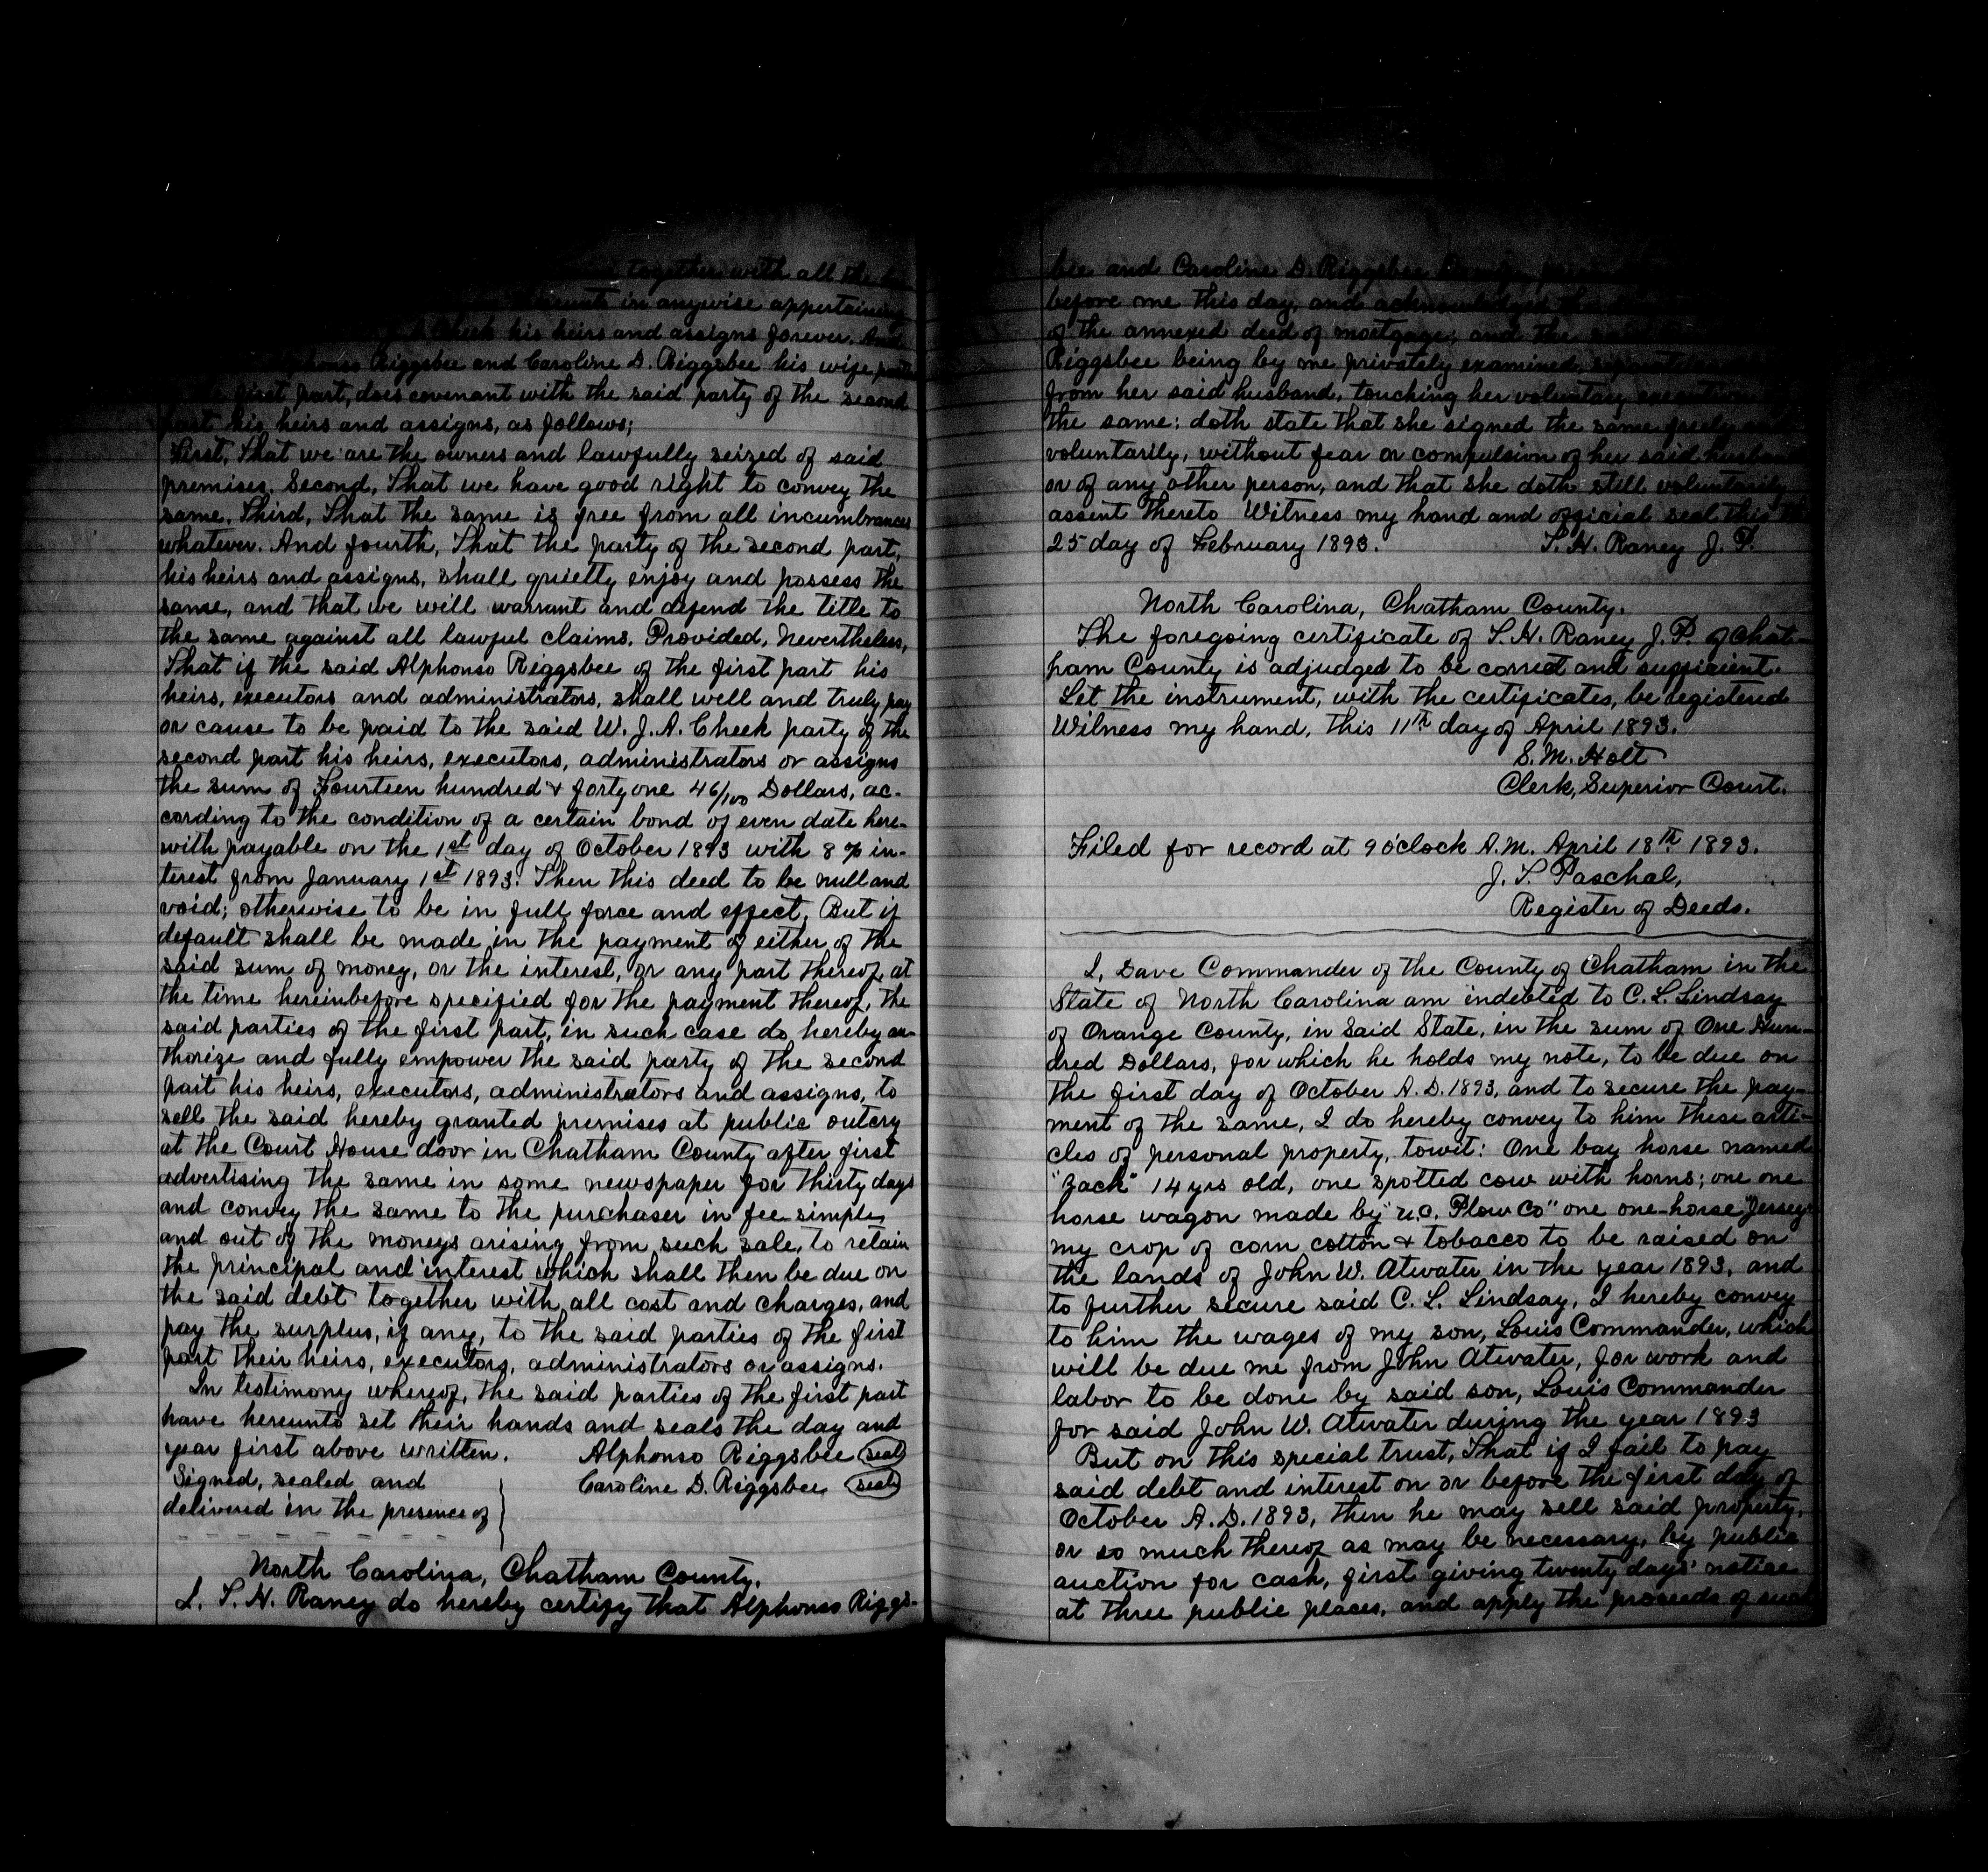 together with all the
in anywise appertaining
his heirs and assigns forever. And
Riggsbee and Caroline D. Riggsbee his wife
first part, does covenant with the said party of the second
part his heirs and assigns, as follows;
First, That we are the owners and lawfully seized of said
premises. Second, That we have good right to convey the
same. Third, That the same is free from all incumbrances
whatever. And fourth, That the party of the second part,
his heirs and assigns, shall quietly enjoy and possess the
same, and that we will warrant and defend the title to
the same against all lawful claims. Provided, Nevertheless,
That if the said Alphonso Riggsbee of the first part his
heirs, executors and administrators, shall well and truly pay
or cause to be paid to the said W. J. A. Cheek party of the
second part his heirs, executors, administrators or assigns
the sum of Fourteen hundred & forty one 46/100 Dollars, ac-
cording to the condition of a certain bond of even date here-
with payable on the 1st day of October 1893 with 8% in-
terest from January 1st 1893. Then this deed to be null and
void; otherwise to be in full force and effect. But if
default shall be made in the payment of either of the
said sum of money, or the interest, or any part thereof, at
the time hereinbefore specified for the payment thereof, the
said parties of the first part, in such case do hereby au-
thorize and fully empower the said party of the second
part his heirs, executors, administrators and assigns, to
sell the said hereby granted premises at public outcry
at the Court House door in Chatham County after first
advertising the same in some newspaper for thirty days
and convey the same to the purchaser in fee simple,
and out of the moneys arising from such sale, to retain
the principal and interest which shall then be due on
the said debt together with all cost and charges, and
pay the surplus, if any, to the said parties of the first
part their heirs, executors, administrators or assigns.
In testimony whereof, the said parties of the first part
have hereunto set their hands and seals the day and
year first above written. Alphonso Riggsbee (seal)
Signed, sealed and Caroline D. Riggsbee (seal)
delivered in the presence of
North Carolina, Chatham County.
I, T. H. Raney do hereby certify that Alphonso Riggs-
bee and Caroline D. Riggsbee
before me this day, and acknowledged the
of the annexed deed of mortgage; and the
Riggsbee being by me privately examined, separate
from her said husband, touching her voluntary execution
the same; doth state that she signed the same freely and
voluntarily, without fear or compulsion of her said husband
or of any other person, and that she doth still voluntarily
assent thereto Witness my hand and official seal this the
25 day of February 1893. T. H. Raney J. P.
North Carolina, Chatham County.
The foregoing certificate of T. H. Raney J. P. of Chat-
ham County is adjudged to be correct and sufficient.
Let the instrument, with the certificates, be registered
Witness my hand, this 11th day of April 1893.
S. M. Holt
Clerk, Superior Court.
Filed for record at 9 o'clock A.M. April 18th 1893.
J. T. Paschal,
Register of Deeds.
I, Dave Commander of the County of Chatham in the
State of North Carolina am indebted to C. L. Lindsay
of Orange County, in said State, in the sum of One Hun-
dred Dollars, for which he holds my note, to be due on
the first day of October A. D. 1893, and to secure the pay-
ment of the same, I do hereby convey to him these arti-
cles of personal property, towit: One bay horse named
"Zack" 14 yrs old, one spotted cow with horns; one one
horse wagon made by "N.C. Plow Co" one one-horse "Jersey"
my crop of corn cotton & tobacco to be raised on
the lands of John W. Atwater in the year 1893, and
to further secure said C. L. Lindsay, I hereby convey
to him the wages of my son, Louis Commander, which
will be due me from John Atwater, for work and
labor to be done by said son, Louis Commander
for said John W. Atwater during the year 1893
But on this special trust, That if I fail to pay
said debt and interest on or before the first day of
October A. D. 1893, then he may sell said property,
or so much thereof as may be necessary, by public
auction for cash, first giving twenty days' notice
at three public places, and apply the proceeds of such